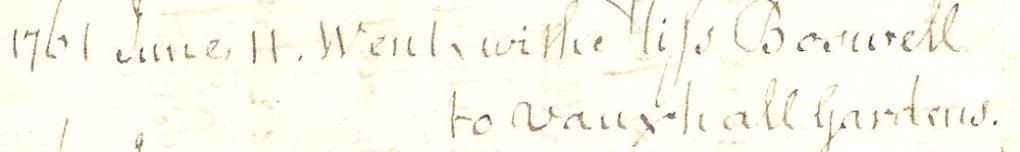 1761 June 11. Went with Miss Boswell
to Vauxhall Gardens.